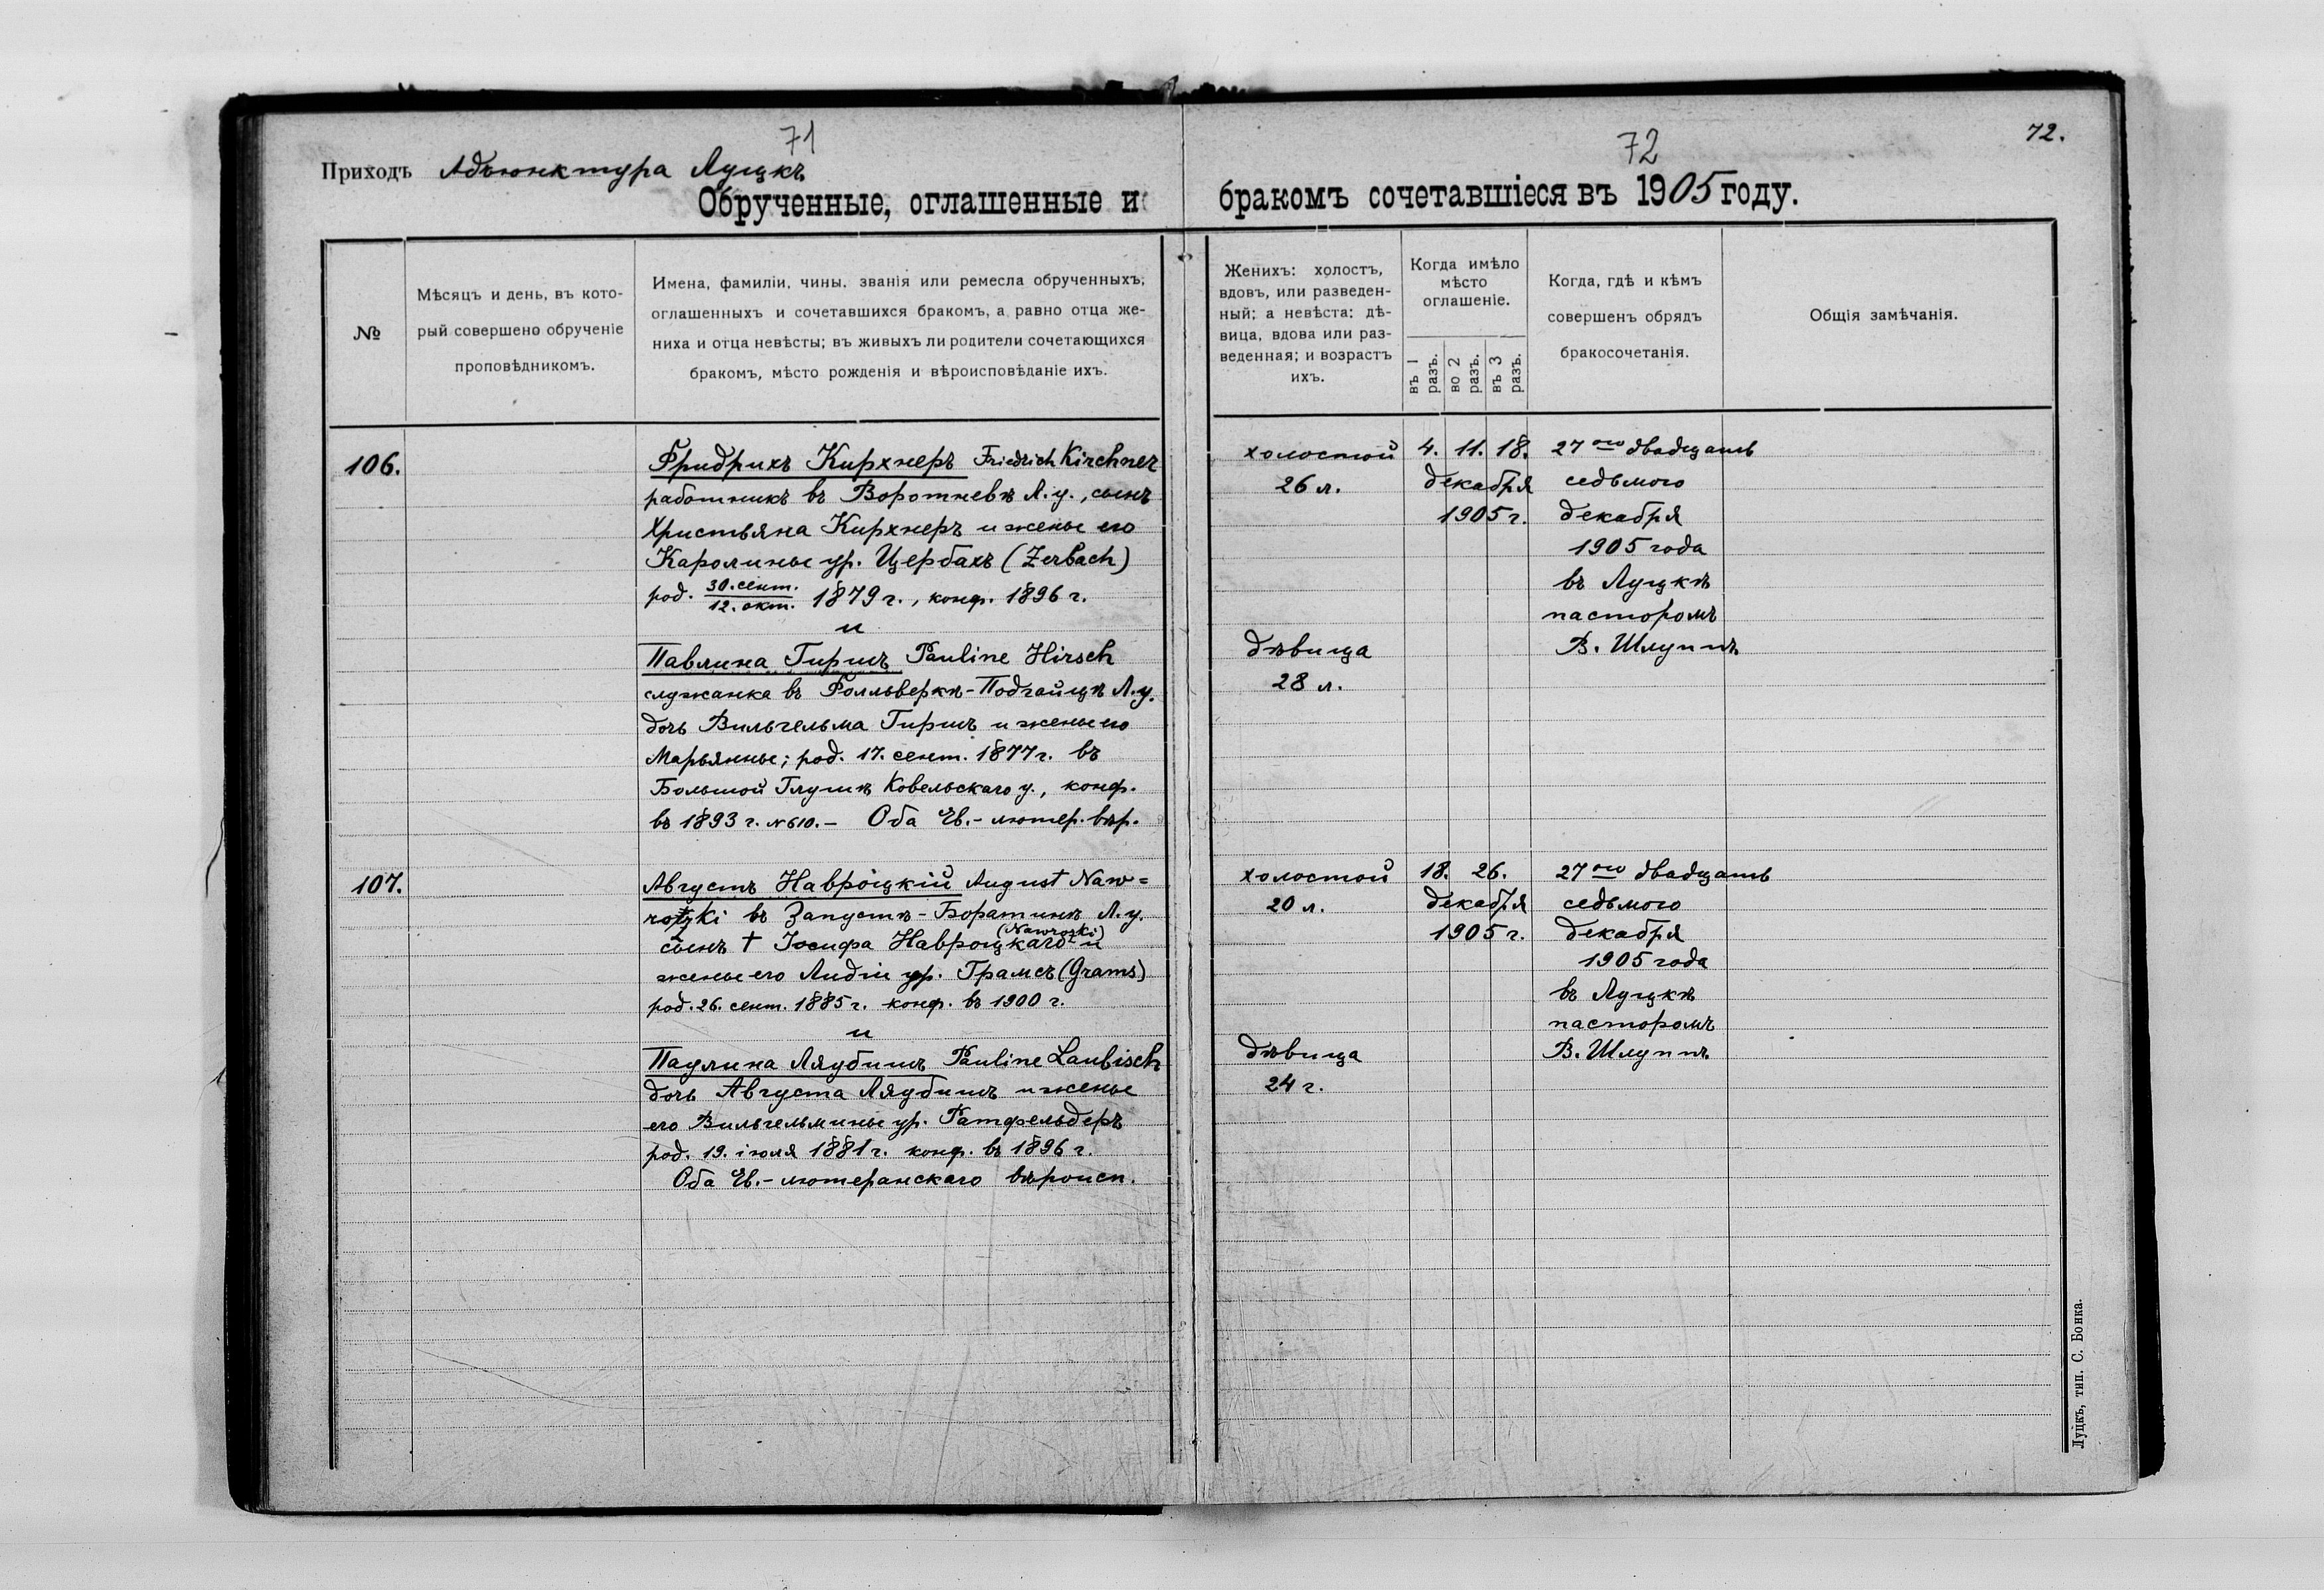 71
Приходъ Адъюнктура Луцкъ
Обрученные, оглашенные и
№
Мѣсяцъ и день, въ кото-
рый совершено обрученіе
проповѣдникомъ.
Имена, фамиліи, чины, званія или ремесла обрученныхъ,
оглашенныхъ и сочетавшихся бракомъ, а равно отца же-
ниха и отца невѣсты; въ живыхъ ли родители сочетающихся
бракомъ, мѣсто рожденія и вѣроисповѣданіе ихъ.
106.
Фридрихъ Кирхнеръ Friedrich Kirchner
работникъ въ Воротневѣ Л. у., сынъ
Христьяна Кирхнеръ и жены его
Каролины ур. Цербахъ (Zerbach)
род. 30. сент. / 12. окт. 1879 г., конф. 1896 г.
и
Павлина Гиршъ Pauline Hirsch
служанка въ Фолльверкѣ-Подгайцѣ Л. у.
дочь Вильгельма Гиршъ и жены его
Марьянны; род. 17. сент. 1877 г. въ
Большой Глушѣ Ковельскаго у., конф.
въ 1893 г. №610. — Оба Ев.-лютер. вѣр.
107.
Августъ Навроцкій August Naw=
rotzki въ Запустѣ-Боратинѣ Л. у.
(Nawroski)
сынъ † Іосифа Навроцкаго и
жены его Лидіи ур. Грамсъ (Grams)
род. 26. сент. 1885 г. конф. въ 1900 г.
и
Паулина Ляубишъ Pauline Laubisch
дочь Августа Ляубишъ и жены
его Вильгельмины ур. Ратфельдеръ
род. 19. іюля 1881 г. конф. въ 1896 г.
Оба Ев.-лютеранскаго вѣроисп.
72
72.
бракомъ сочетавшіеся въ 1905 году.
Женихъ: холостъ,
вдовъ, или разведен-
ный; а невѣста: дѣ-
вица, вдова или раз-
веденная; и возрастъ
ихъ.
Когда имѣло
мѣсто
оглашеніе.
въ 1 разъ.
во 2 разъ.
въ 3 разъ.
Когда, гдѣ и кѣмъ
совершенъ обрядъ
бракосочетанія.
Общія замѣчанія.
холостой
26 л.
4. 11. 18.
декабря
1905 г.
27 го двадцать
седьмого
декабря
1905 года
въ Луцкѣ
пасторомъ
В. Шлуппъ
дѣвица
28 л.
холостой
20 л.
18. 26.
декабря
1905 г.
27 го двадцать
седьмого
декабря
1905 года
въ Луцкѣ
пасторомъ
В. Шлуппъ
дѣвица
24 г.
Луцкъ, тип. С. Бонка.